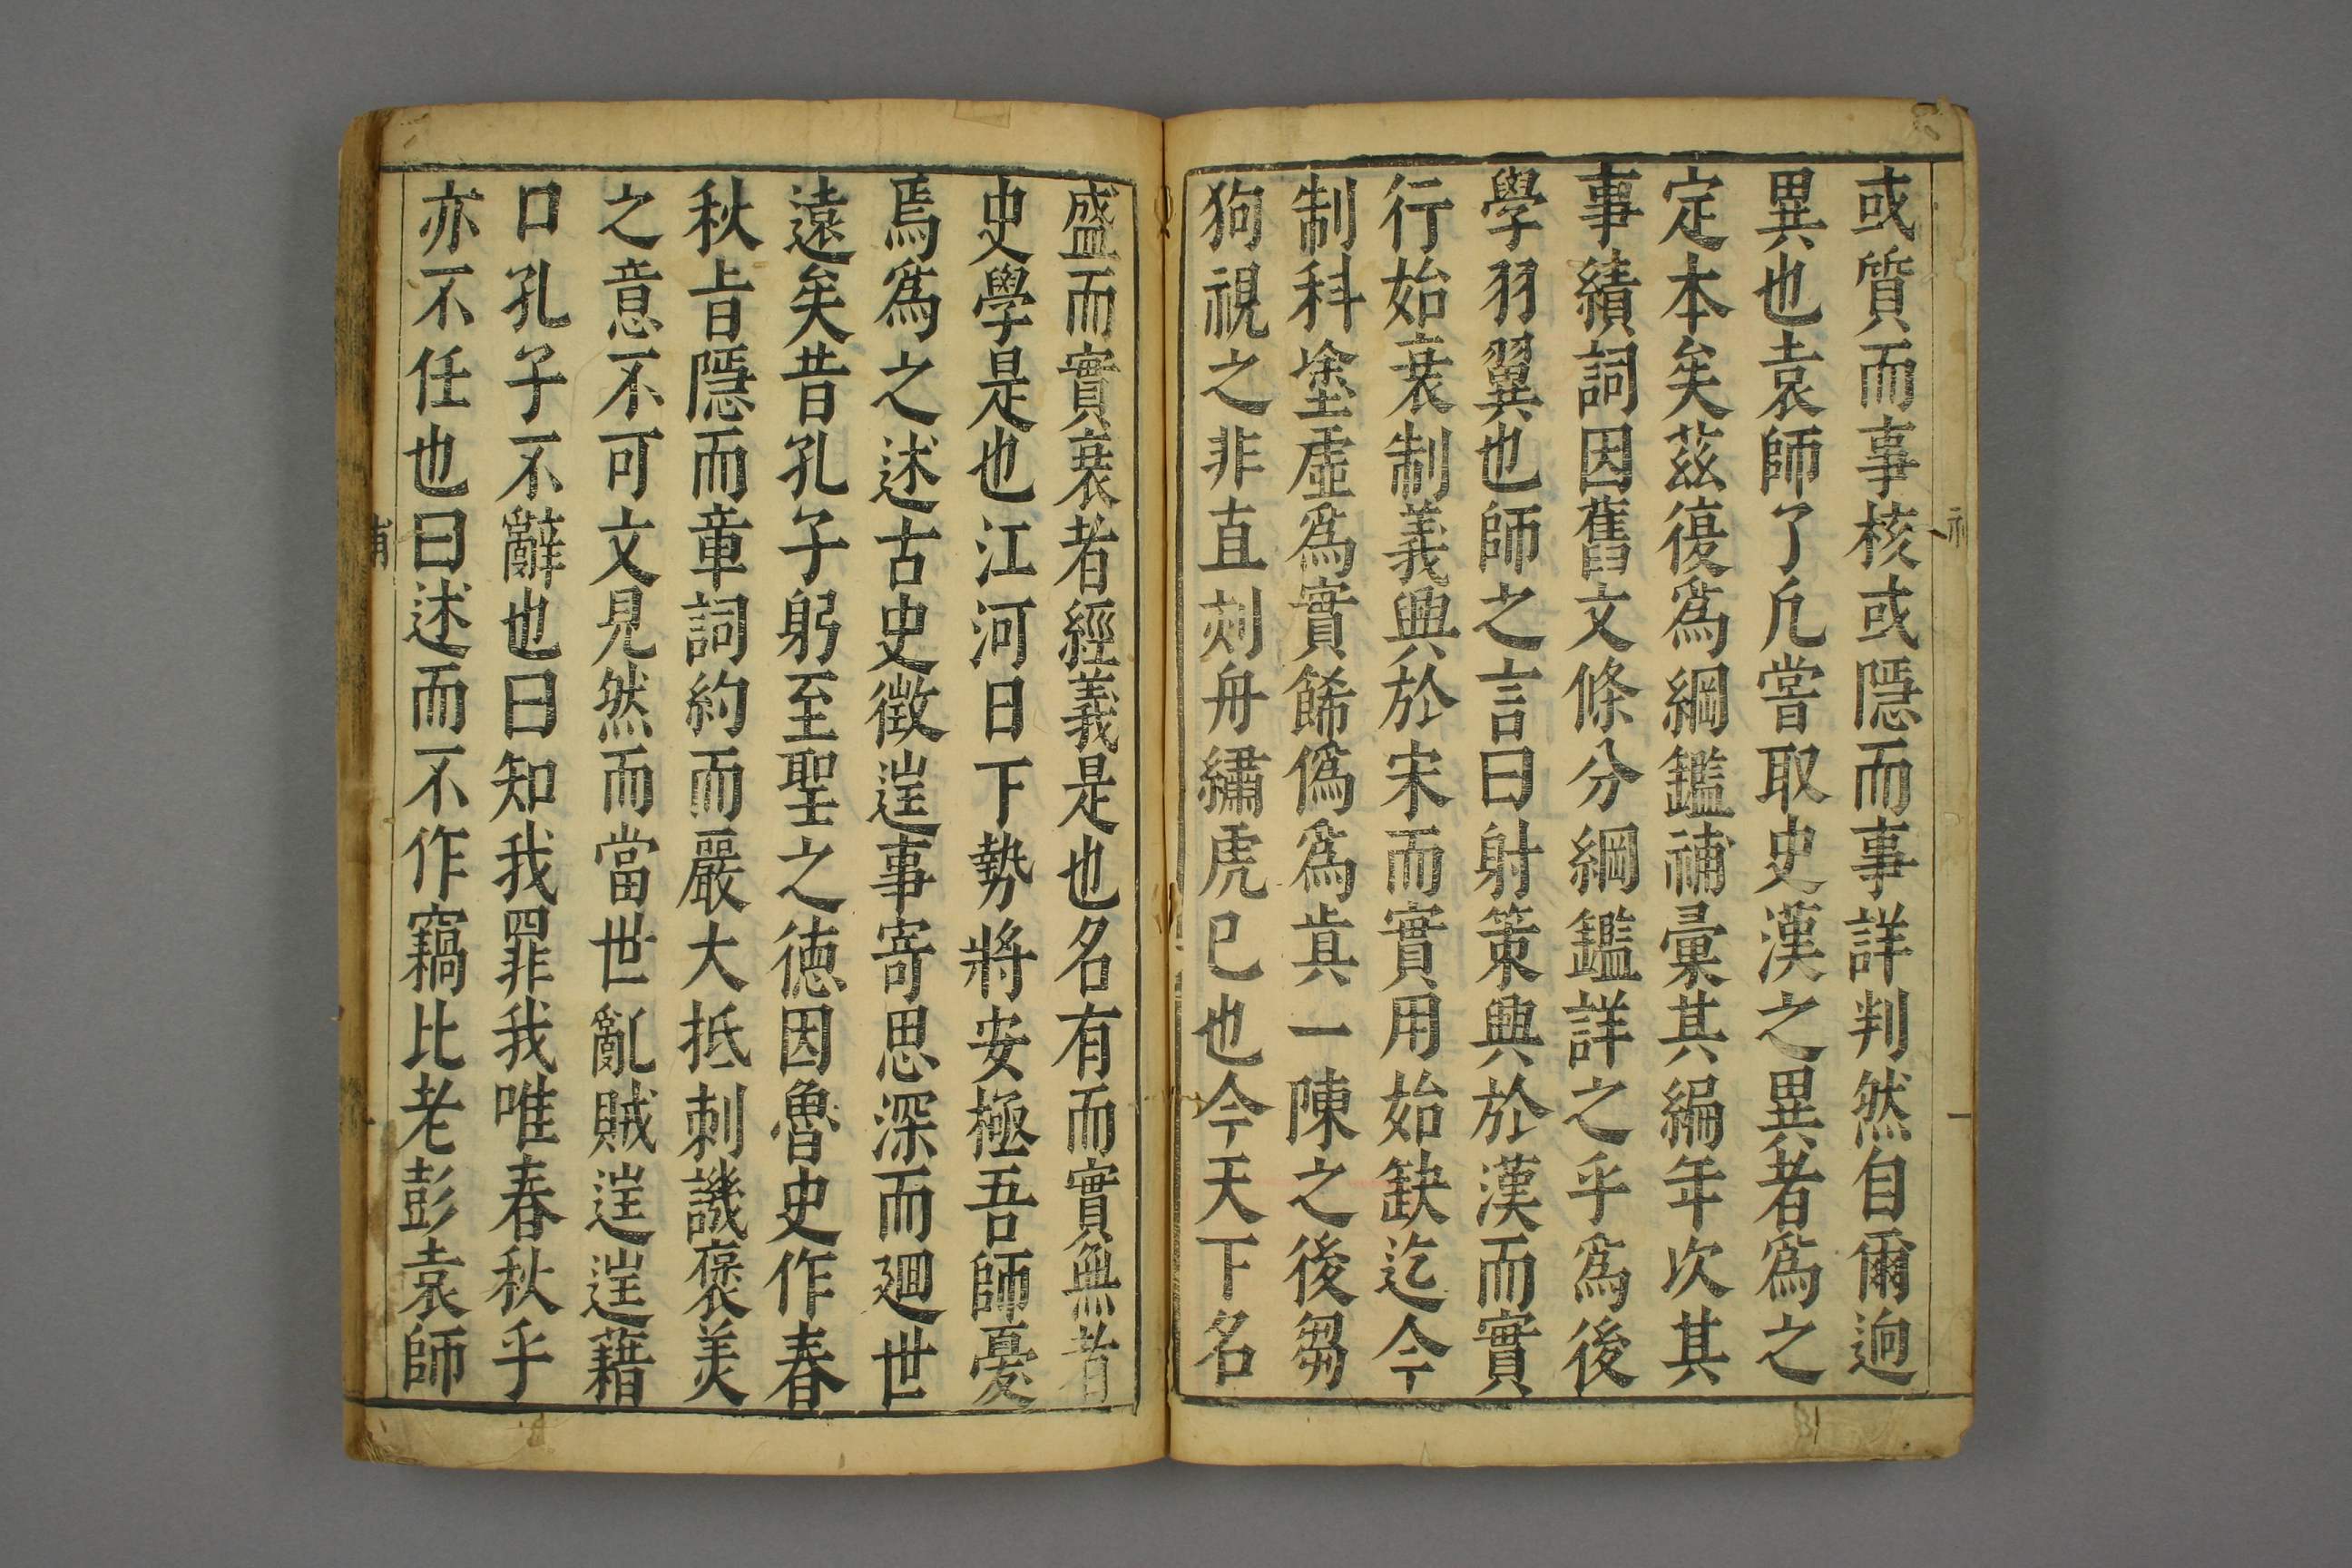 或質而事核或隱而事詳判然自爾逈
異也袁師了凡嘗取史漢之異者爲之
定本矣茲復爲綱鑑補彙其編年次其
事績詞因舊文條分綱鑑詳之乎爲後
學羽翼也師之言曰射策興於漢而實
行始衰制義興於宋而實用始缺迄今
制科塗虛爲實餙僞爲眞一陳之後芻
狗視之非直刻舟繡虎已也今天下名
盛而實衰者經義是也名有而實無者
史學是也江河日下勢將安極吾師憂
焉爲之述古史徵逞事寄思深而廻世
遠矣昔孔子躬至聖之德因魯史作春
秋㫖隱而章詞約而嚴大抵刺譏褒美
之意不可文見然而當世亂賊逞逞藉
口孔子不辭也曰知我罪我唯春秋乎
亦不任也曰述而不作竊比老彭袁師